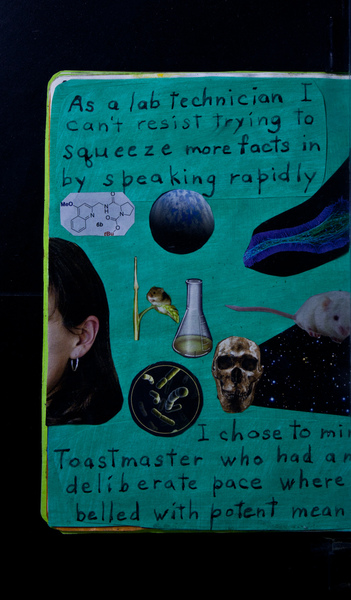 As a lab technician I
can't resist trying to
squeeze more facts in
by speaking rapidly
MeO
N
N
H
O
N
O
O
6b
tBu
I chose to
Toastmaster who had
deliberate pace where
belled with potent